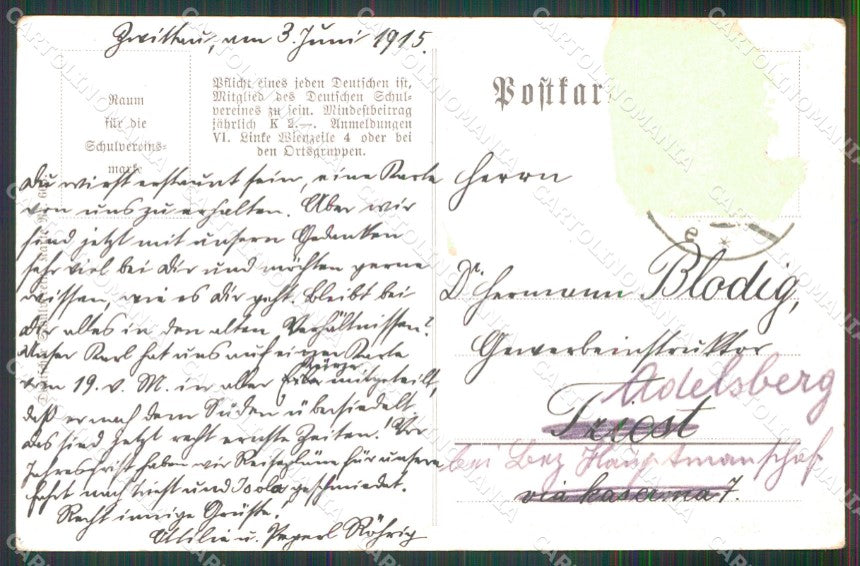 Zwittau, am 3. Juni 1915.
Raum
für die
Schulvereins-
marke
Pflicht eines jeden Deutschen ist,
Mitglied des Deutschen Schul-
vereines zu sein. Mindestbeitrag
jährlich K 2.—. Anmeldungen
VI. Linke Wienzeile 4 oder bei
den Ortsgruppen.
Du wirst erstaunt sein, eine Karte
von uns zu erhalten. Aber wir
sind jetzt mit unsern Gedanken
sehr viel bei Dir und möchten gerne
wissen, wie es Dir geht. Bleibt bei
Dir alles in den alten Verhältnissen?
Unser Karl hat uns auf einer Karte
vom 19. v. M. in aller Kürze mitgeteilt,
daß er nach dem Süden übersiedelt.
Das sind jetzt recht ernste Zeiten! Vor
Jahresfrist haben wir Reisepläne für unsere
Fahrt nach Triest und Isola geschmiedet.
Recht innige Grüße!
Otilie u. Pepperl Röhrig
Postkar
Herrn
Dr. Hermann Blodig,
Gewerbeinstruktor
Adelsberg
Triest
bei Bez Hauptmanschaf
via kaserma 7.
CARTOLINOMANIA